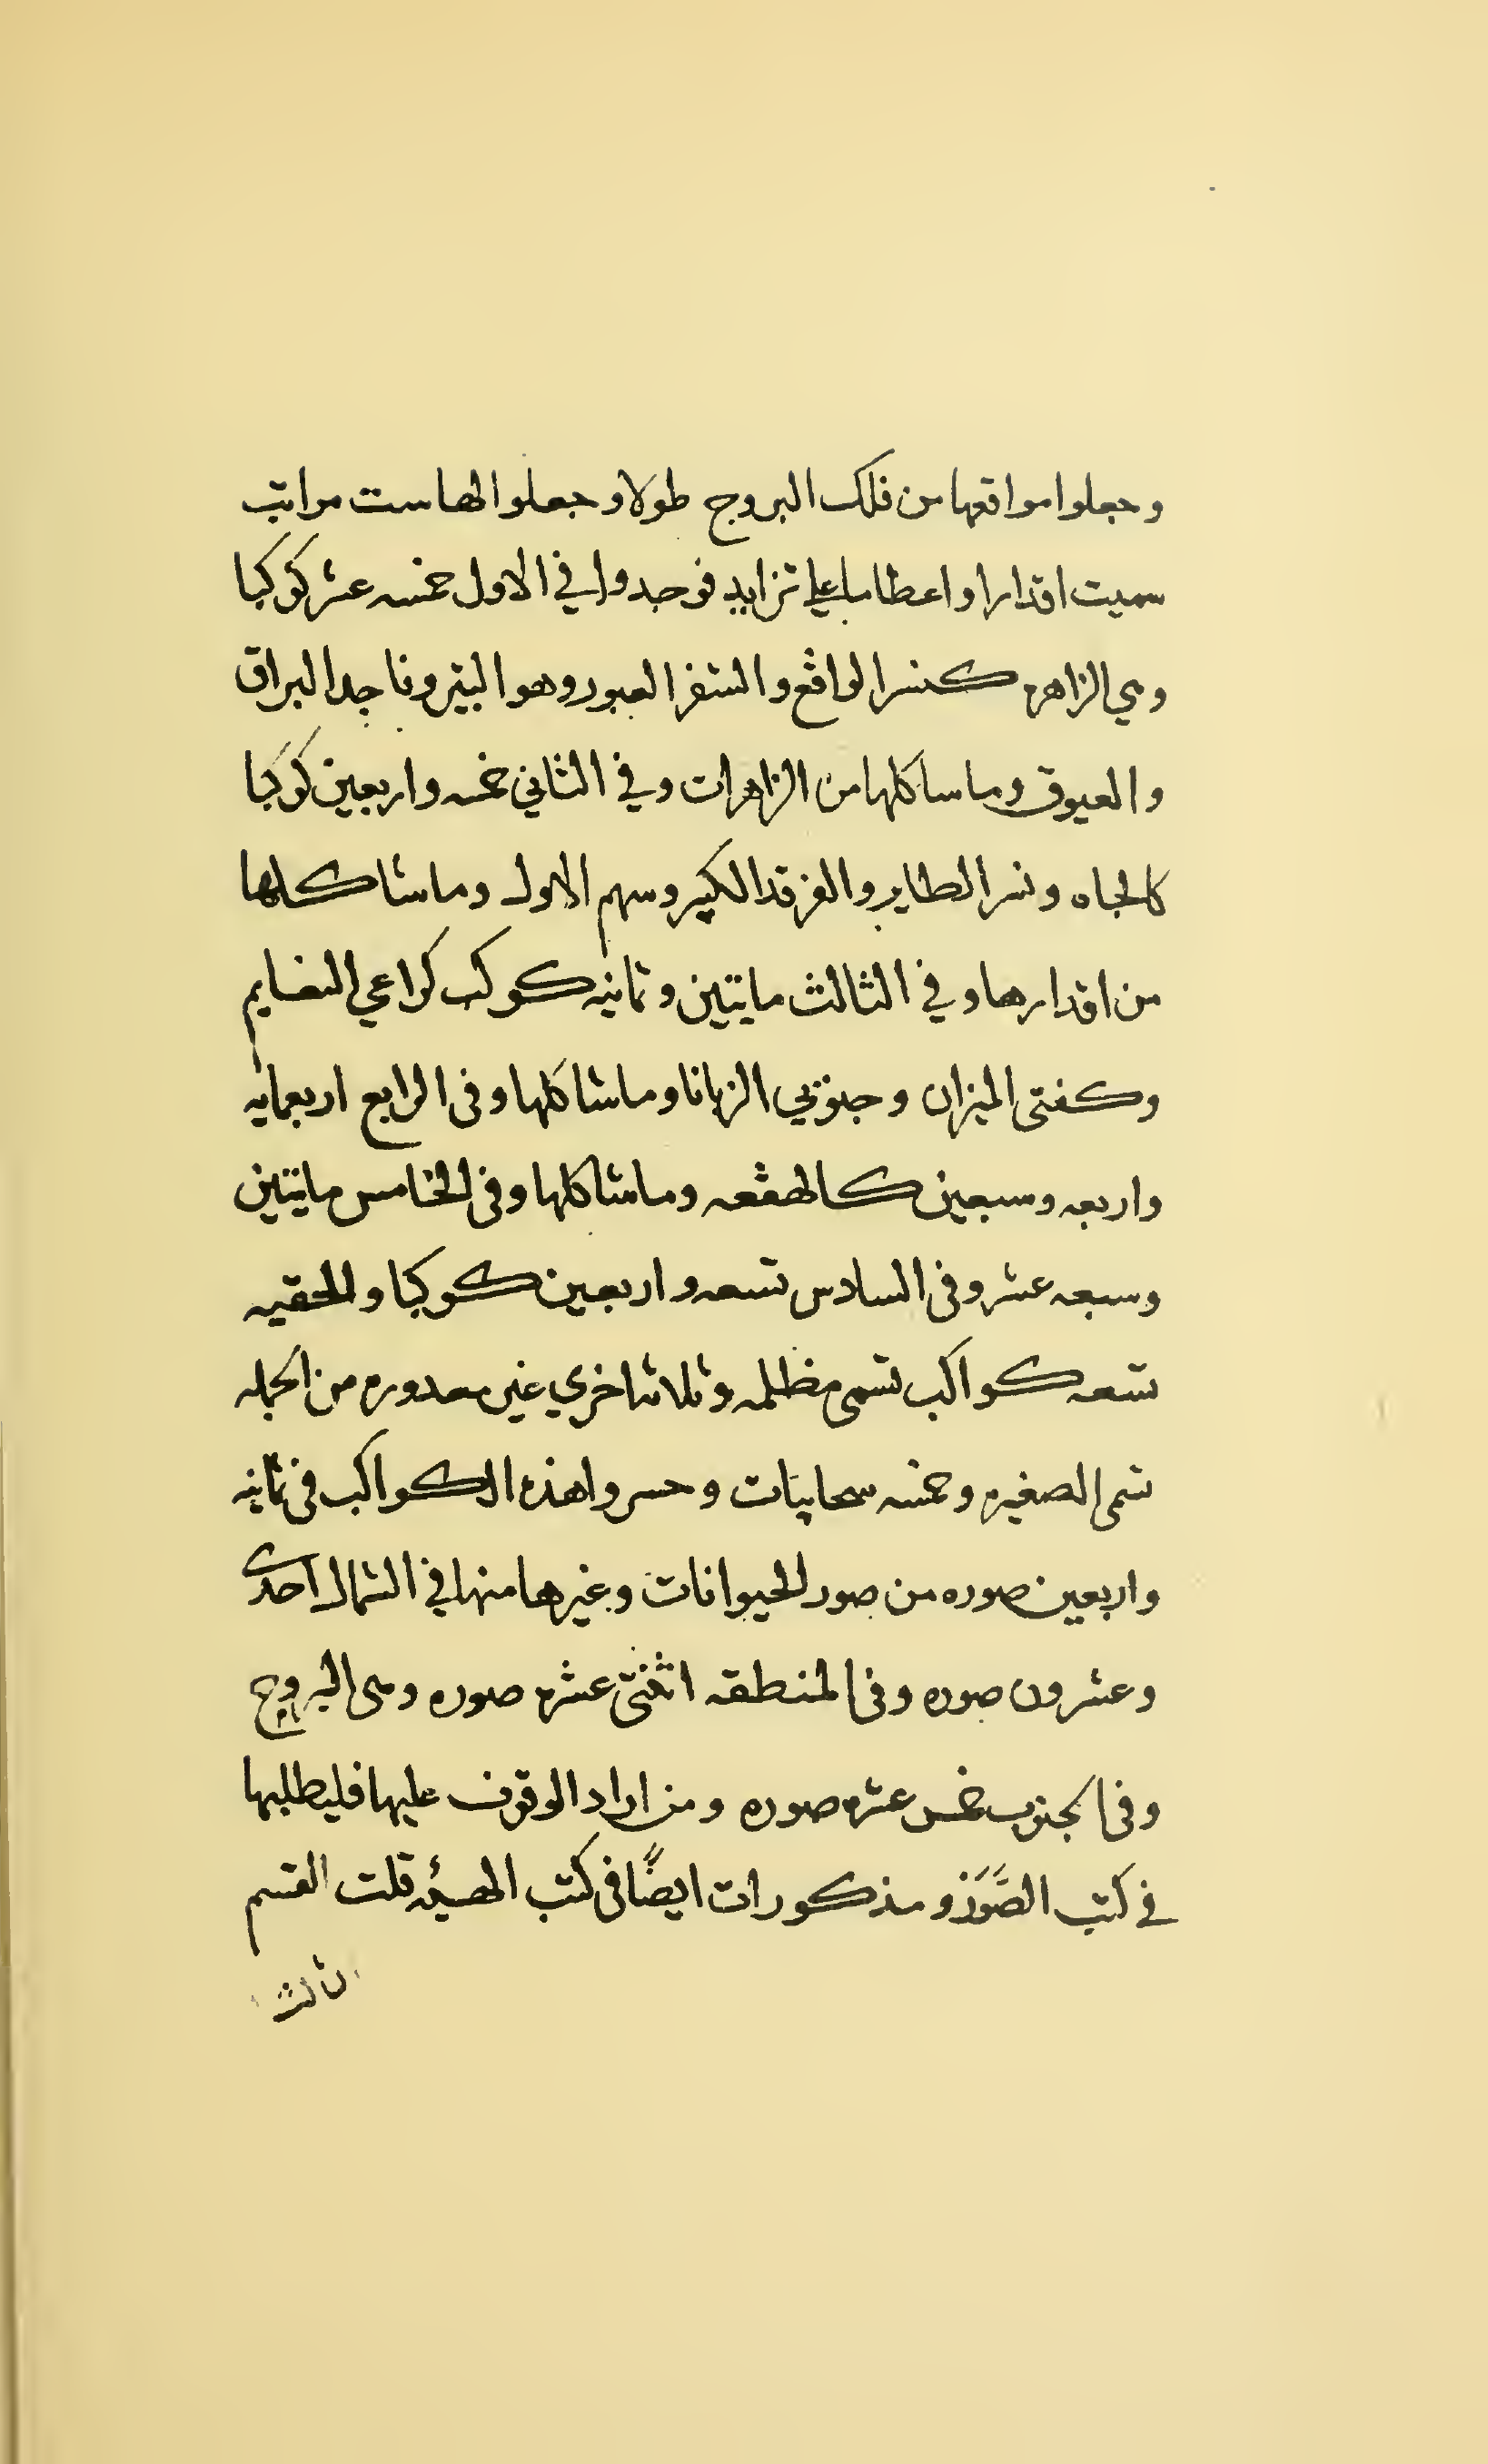 وجعلوا مواقعها من فلك البروج طولا وجعلوا لها ست مراتب
سميت اقدارا واعظاما علي تزايد فوجدوا في الاول خمسه عشر كوكبا
وهي الزاهره كنسر الواقع والشعر العبور وهو التير وناجد البراق
والعيوق وما ساكلها من الزاهرات وفي الثاني خمسه واربعين كوكبا
كالجاه ونسر الطاير والفرقد الكبير وسهم الاول وما شاكلها
من اقدارها وفي الثالث مايتين وثمانيه كوكب كراعي النعايم
وكفتى الميزان وجنوبي الزبانا وما شاكلها وفى الرابع اربعمايه
واربعه وسبعين كالهقعه وما شاكلها وفى الخامس مايتين
وسبعه عشر وفى السادس تسعه واربعين كوكبا والخفيه
تسعه كواكب تسمى مظلمه وثلاثا اخري غير معدوده من الجمله
تسمى الصغيره وخمسه سحابيات وحسروا هذه الكواكب فى ثمانيه
واربعين صوره من صور الحيوانات وغيرها منها في الشمال احدى
وعشرون صوره وفى المنطقه اثنتى عشره صوره وهى البروج
وفى الجنوب خمس عشره صوره ومن اراد الوقوف عليها فليطلبها
في كتب الصور ومذكورات ايضًا فى كتب الهيئه قلت القسم
الثالث